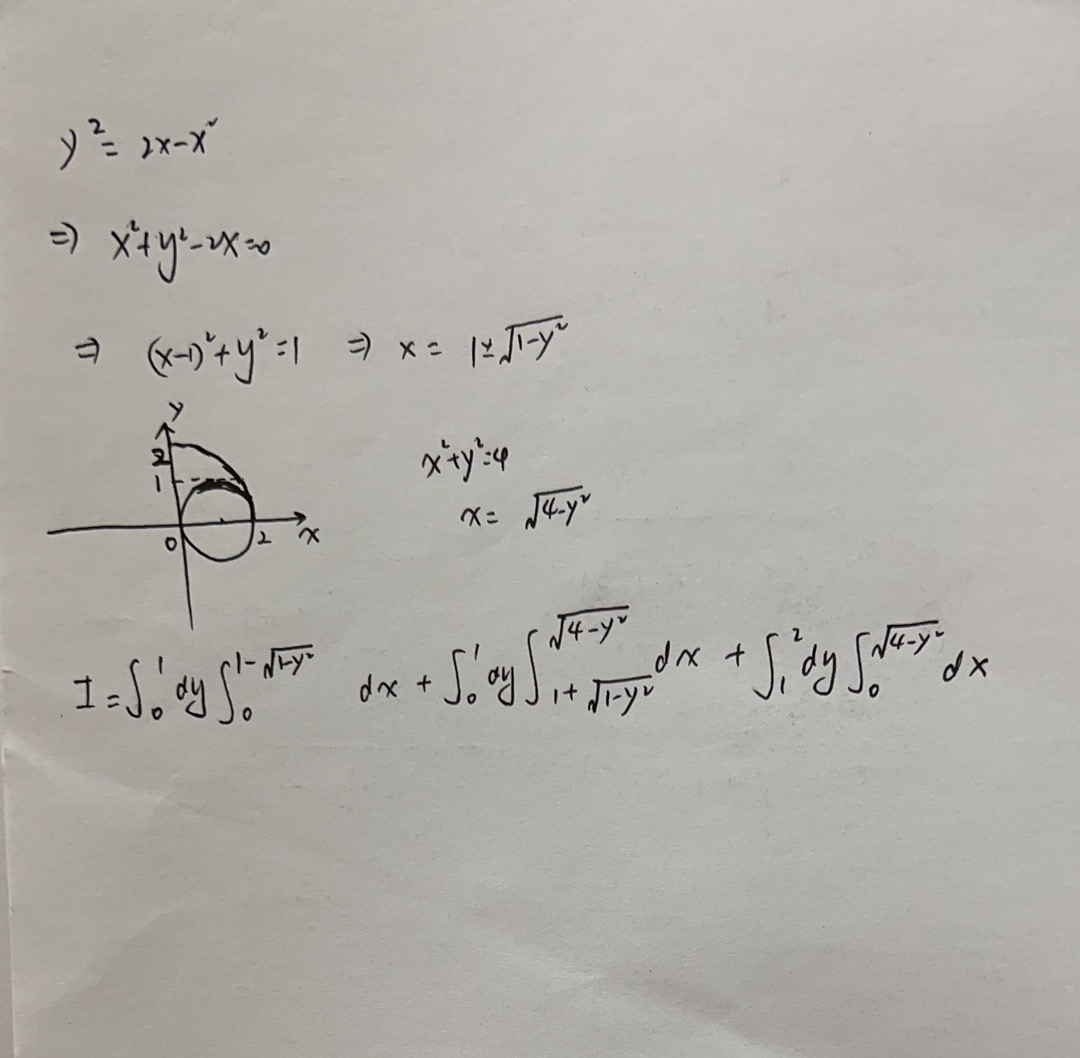 y² = 2x-x²
⇒ x²+y²-2x=0
⇒ (x-1)²+y²=1 ⇒ x = 1±√(1-y²)
y
2
1
0 2 x
x²+y²=4
x= √(4-y²)
I=∫₀¹dy∫₀^(1-√(1-y²)) dx + ∫₀¹dy∫_(1+√(1-y²))^(√(4-y²)) dx + ∫₁²dy∫₀^(√(4-y²)) dx